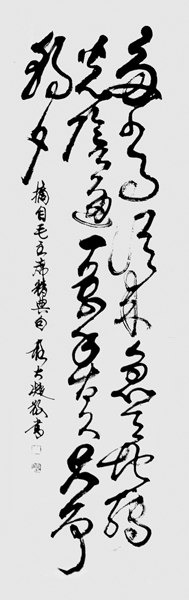 多少事從来急天地轉
光陰迫一萬年太久只争
朝夕
摘自毛主席精典句 書